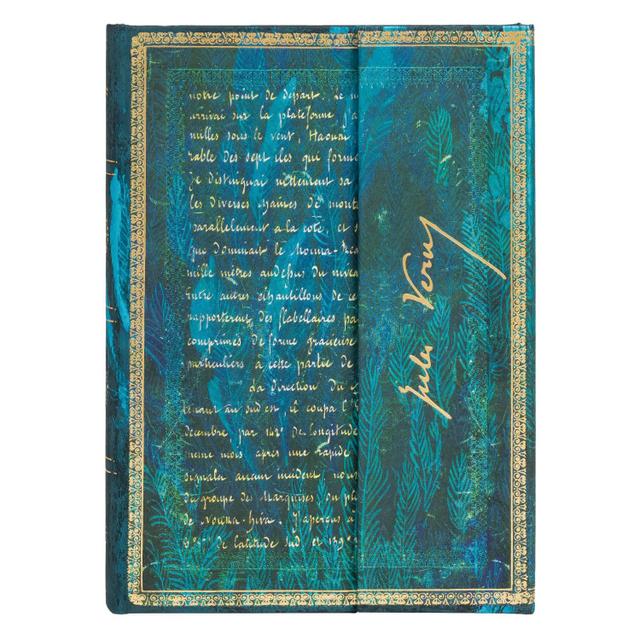 notre point de départ. Le n
arrivai sur la plateforme j'a
milles sous le vent, Haouaï
rable des sept îles qui forme
Je distinguai nettement sa
les diverses chaînes de mont
parallèlement a la cote, et s
que dominait le Mouna-Rea
mille mètres audessus du nivea
Entre autres échantillons de ce
rapportèrent des flabellaires pa
comprimés de forme gracieuse
particuliers a cette partie de
La direction du
tenant au sud est, il coupa l'
décembre par 142° de longitude
meme mois après une rapide
signala aucun incident, nous
du groupe des Marquises. Du pl
de Nouka-hiva. J'aperçus a
de latitude sud et 139°
Jules Verne